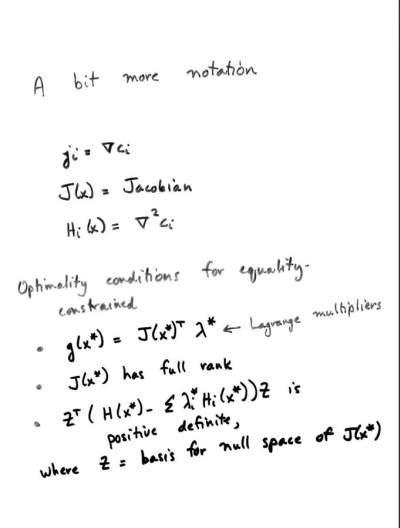 A bit more notation
gi = ∇ci
J(x) = Jacobian
Hi(x) = ∇²ci
Optimality conditions for equality-
constrained
• g(x*) = J(x*)ᵀ λ* ← Lagrange multipliers
• J(x*) has full rank
• Zᵀ (H(x*) - Σ λi* Hi(x*)) Z is
positive definite,
where Z = basis for null space of J(x*)